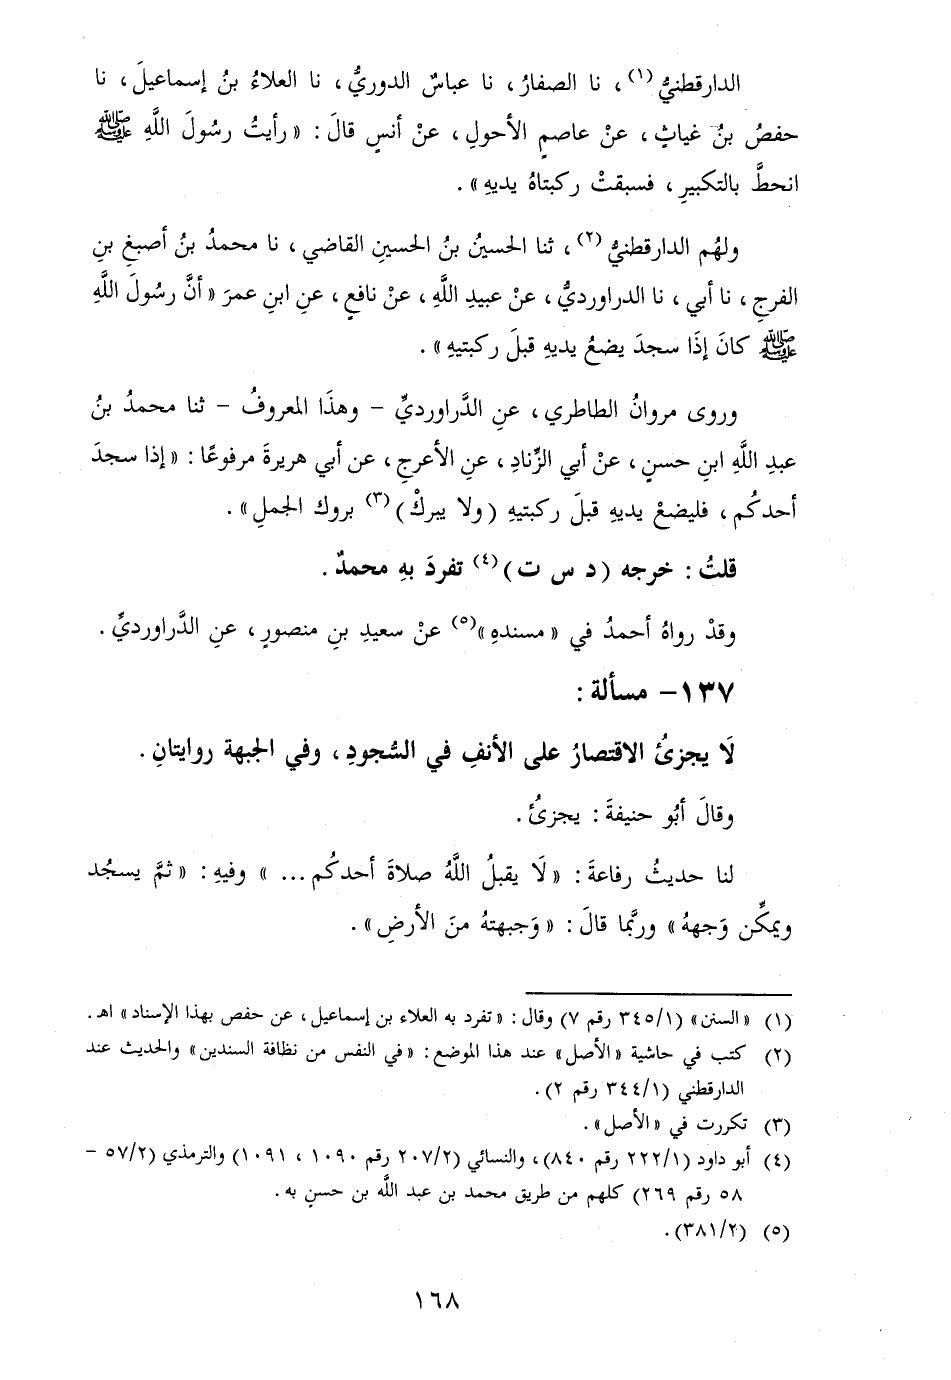 الدارقطنيُّ(١)، نا الصفارُ، نا عباسٌ الدوريُّ، نا العلاءُ بنُ إسماعيلَ، نا
حفصُ بنُ غياثٍ، عنْ عاصمٍ الأحولِ، عنْ أنسٍ قالَ: «رأيتُ رسُولَ اللَّهِ ﷺ
انحطَّ بالتكبيرِ، فسبقتْ ركبتاهُ يديهِ».
ولهُم الدارقطنيُّ(٢)، ثنا الحسينُ بنُ الحسينِ القاضي، نا محمدُ بنُ أصبغِ بنِ
الفرجِ، نا أبي، نا الدراورديُّ، عنْ عبيدِ اللَّهِ، عنْ نافعٍ، عنِ ابنِ عمرَ «أنَّ رسُولَ اللَّهِ
ﷺ كانَ إذَا سجدَ يضعُ يديهِ قبلَ ركبتيهِ».
وروى مروانُ الطاطري، عنِ الدَّراورديِّ - وهذَا المعروفُ - ثنا محمدُ بنُ
عبدِ اللَّهِ ابنِ حسنٍ، عنْ أبي الزِّنادِ، عنِ الأعرجِ، عن أبي هريرةَ مرفوعًا: «إذا سجدَ
أحدكُم، فليضعْ يديهِ قبلَ ركبتيهِ (ولا يبركْ)(٣) بروك الجملِ».
قلتُ: خرجه (د س ت)(٤) تفردَ بهِ محمدٌ.
وقدْ رواهُ أحمدُ في «مسندهِ»(٥) عنْ سعيدِ بنِ منصورٍ، عنِ الدَّراورديِّ.
١٣٧- مسألة:
لَا يجزئُ الاقتصارُ على الأنفِ في السُّجودِ، وفي الجبهة روايتانِ.
وقالَ أبُو حنيفةَ: يجزئُ.
لنا حديثُ رفاعةَ: «لَا يقبلُ اللَّهُ صلاةَ أحدكُم...» وفيهِ: «ثمَّ يسجُد
ويمكِّن وَجههُ» وربَّما قالَ: «وَجبهتهُ منَ الأرضِ».
(١) «السنن» (٣٤٥/١ رقم ٧) وقال: «تفرد به العلاء بن إسماعيل، عن حفص بهذا الإسناد» اهـ.
(٢) كتب في حاشية «الأصل» عند هذا الموضع: «في النفس من نظافة السندين» والحديث عند
الدارقطني (٣٤٤/١ رقم ٢).
(٣) تكررت في «الأصل».
(٤) أبو داود (٢٢٢/١ رقم ٨٤٠)، والنسائي (٢٠٧/٢ رقم ١٠٩٠، ١٠٩١) والترمذي (٥٧/٢ -
٥٨ رقم ٢٦٩) كلهم من طريق محمد بن عبد اللَّه بن حسنٍ به.
(٥) (٣٨١/٢).
١٦٨